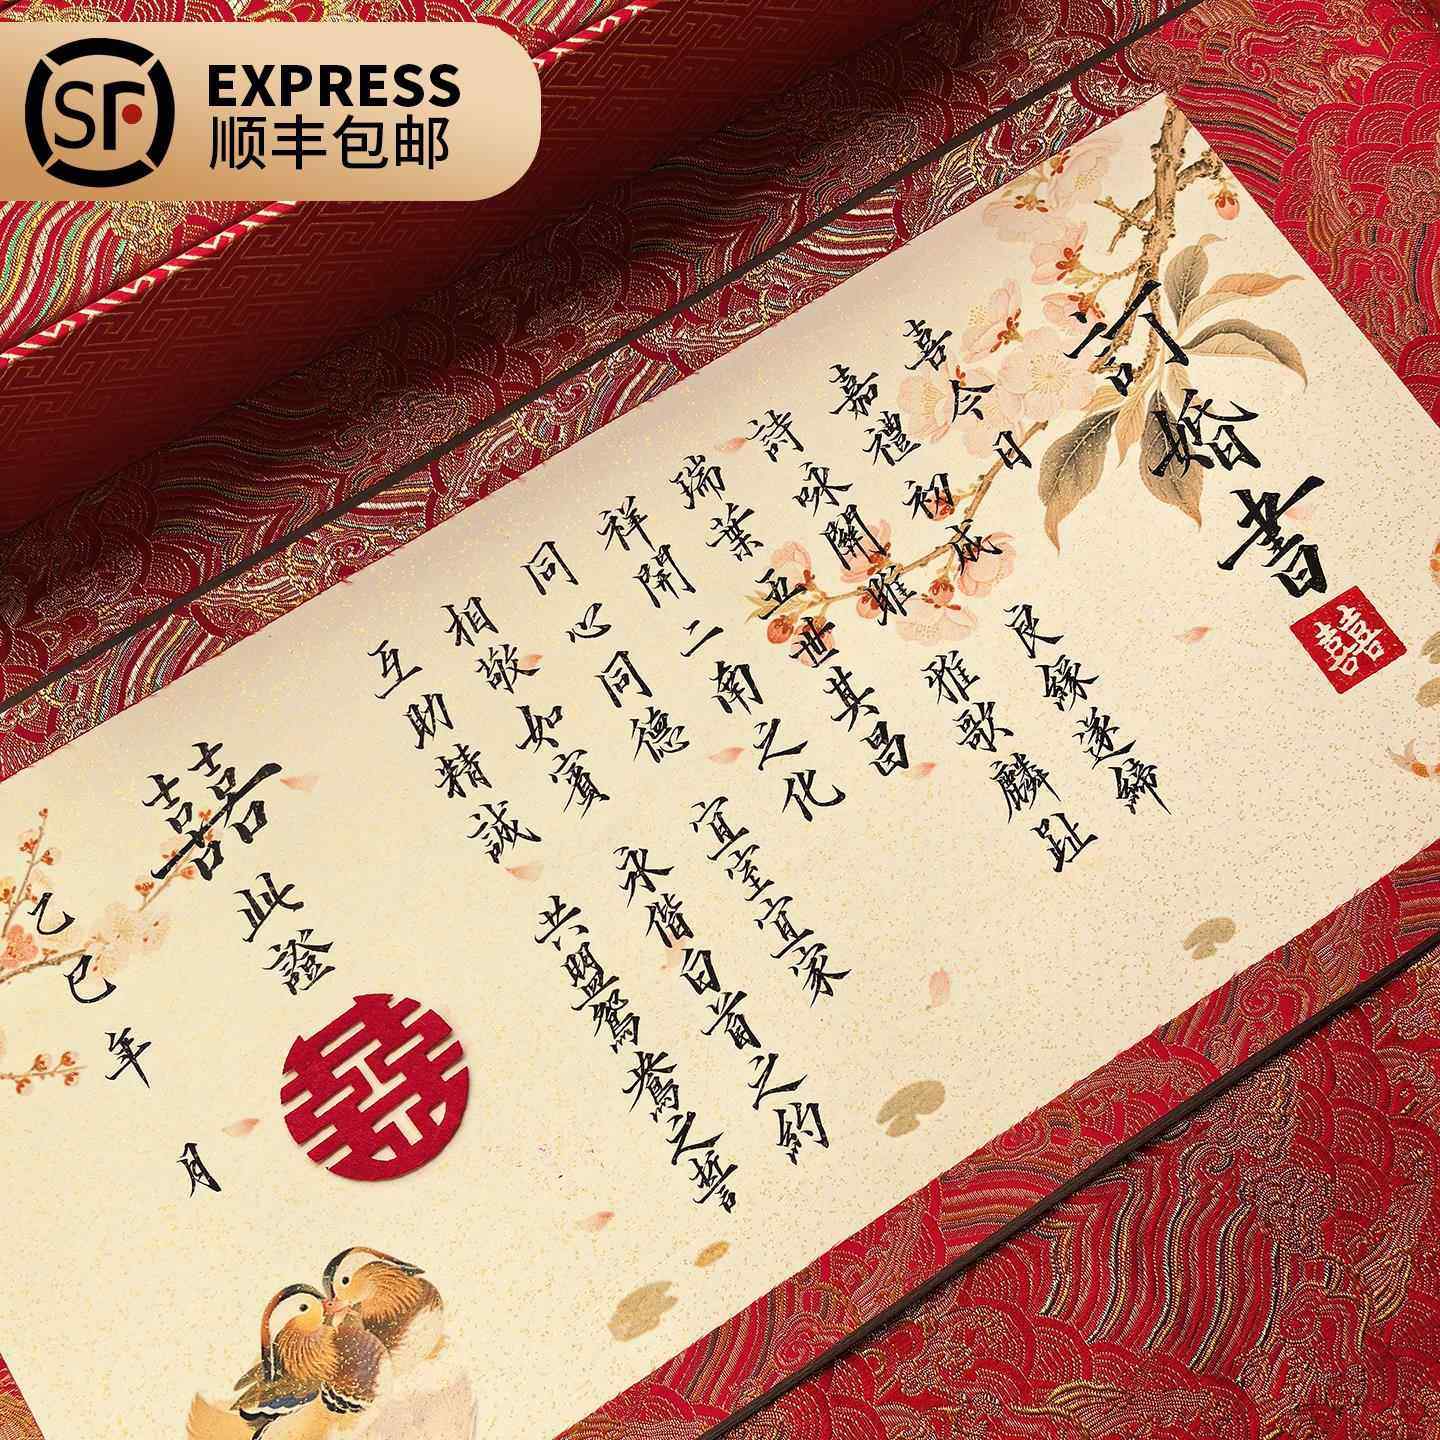 EXPRESS
顺丰包邮
訂婚書
囍
喜今日
嘉禮初成 良緣遂締
詩詠關雎 雅歌麟趾
瑞葉五世其昌
祥開二南之化
同心同德 宜室宜家
相敬如賓 永偕白首之約
互助精誠 共盟鴛鴦之誓
囍此證
囍
乙巳年 月
SF